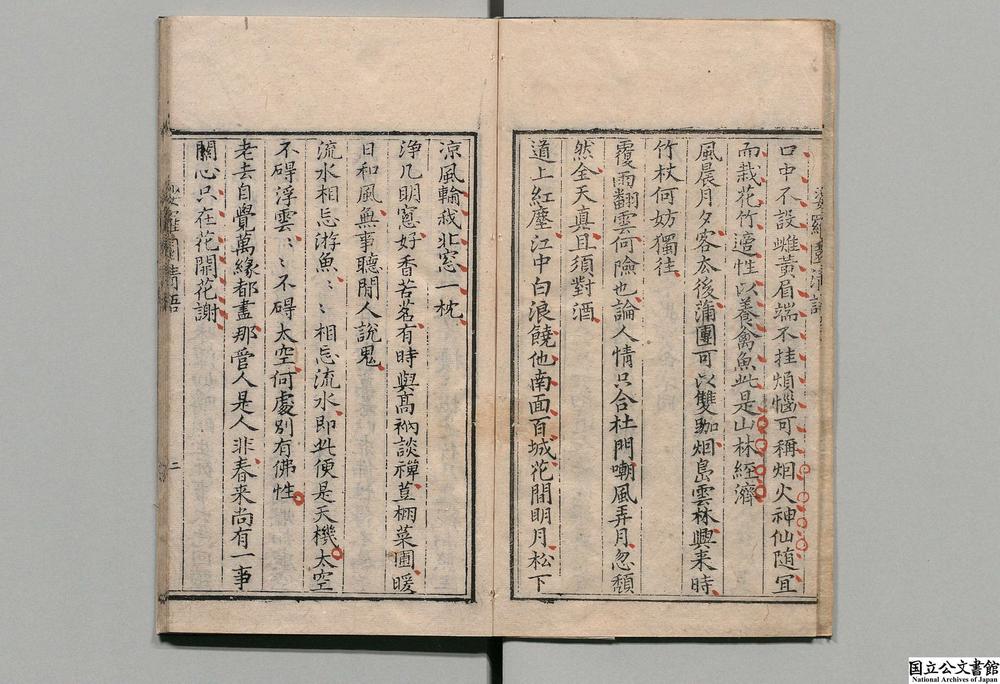 口中不設雌黃眉端不挂煩惱可稱烟火神仙随宜
而栽花竹適性以養禽魚此是山林經濟
風晨月夕客去後蒲團可以雙跏烟島雲林興来時
竹杖何妨獨往
覆雨翻雲何險也論人情只合杜門嘲風弄月忽頹
然全天真且須對酒
道上紅塵江中白浪饒他南面百城花間明月松下
凉風輸我北窓一枕
淨几明窻好香苦茗有時與高衲談禪荳棚菜圃暖
日和風無事聽閒人說鬼
流水相忘游魚〻〻相忘流水即此便是天機太空
不碍浮雲〻〻不碍太空何處別有佛性
老去自覺萬緣都盡那管人是人非春来尚有一事
關心只在花開花謝
娑羅園清語
二
娑羅園清語
国立公文書館
National Archives of Japan